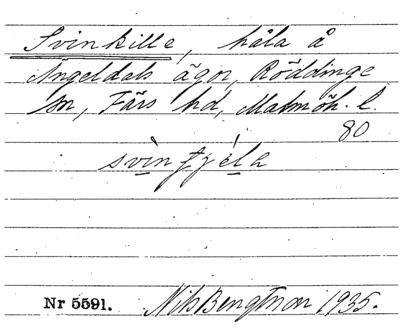 Svinkille, håla å
Ängeldals ägor, Röddinge
sn, Färs hd, Malmöh. l.
80
Nr 5591. Nils Bengtsson 1935.